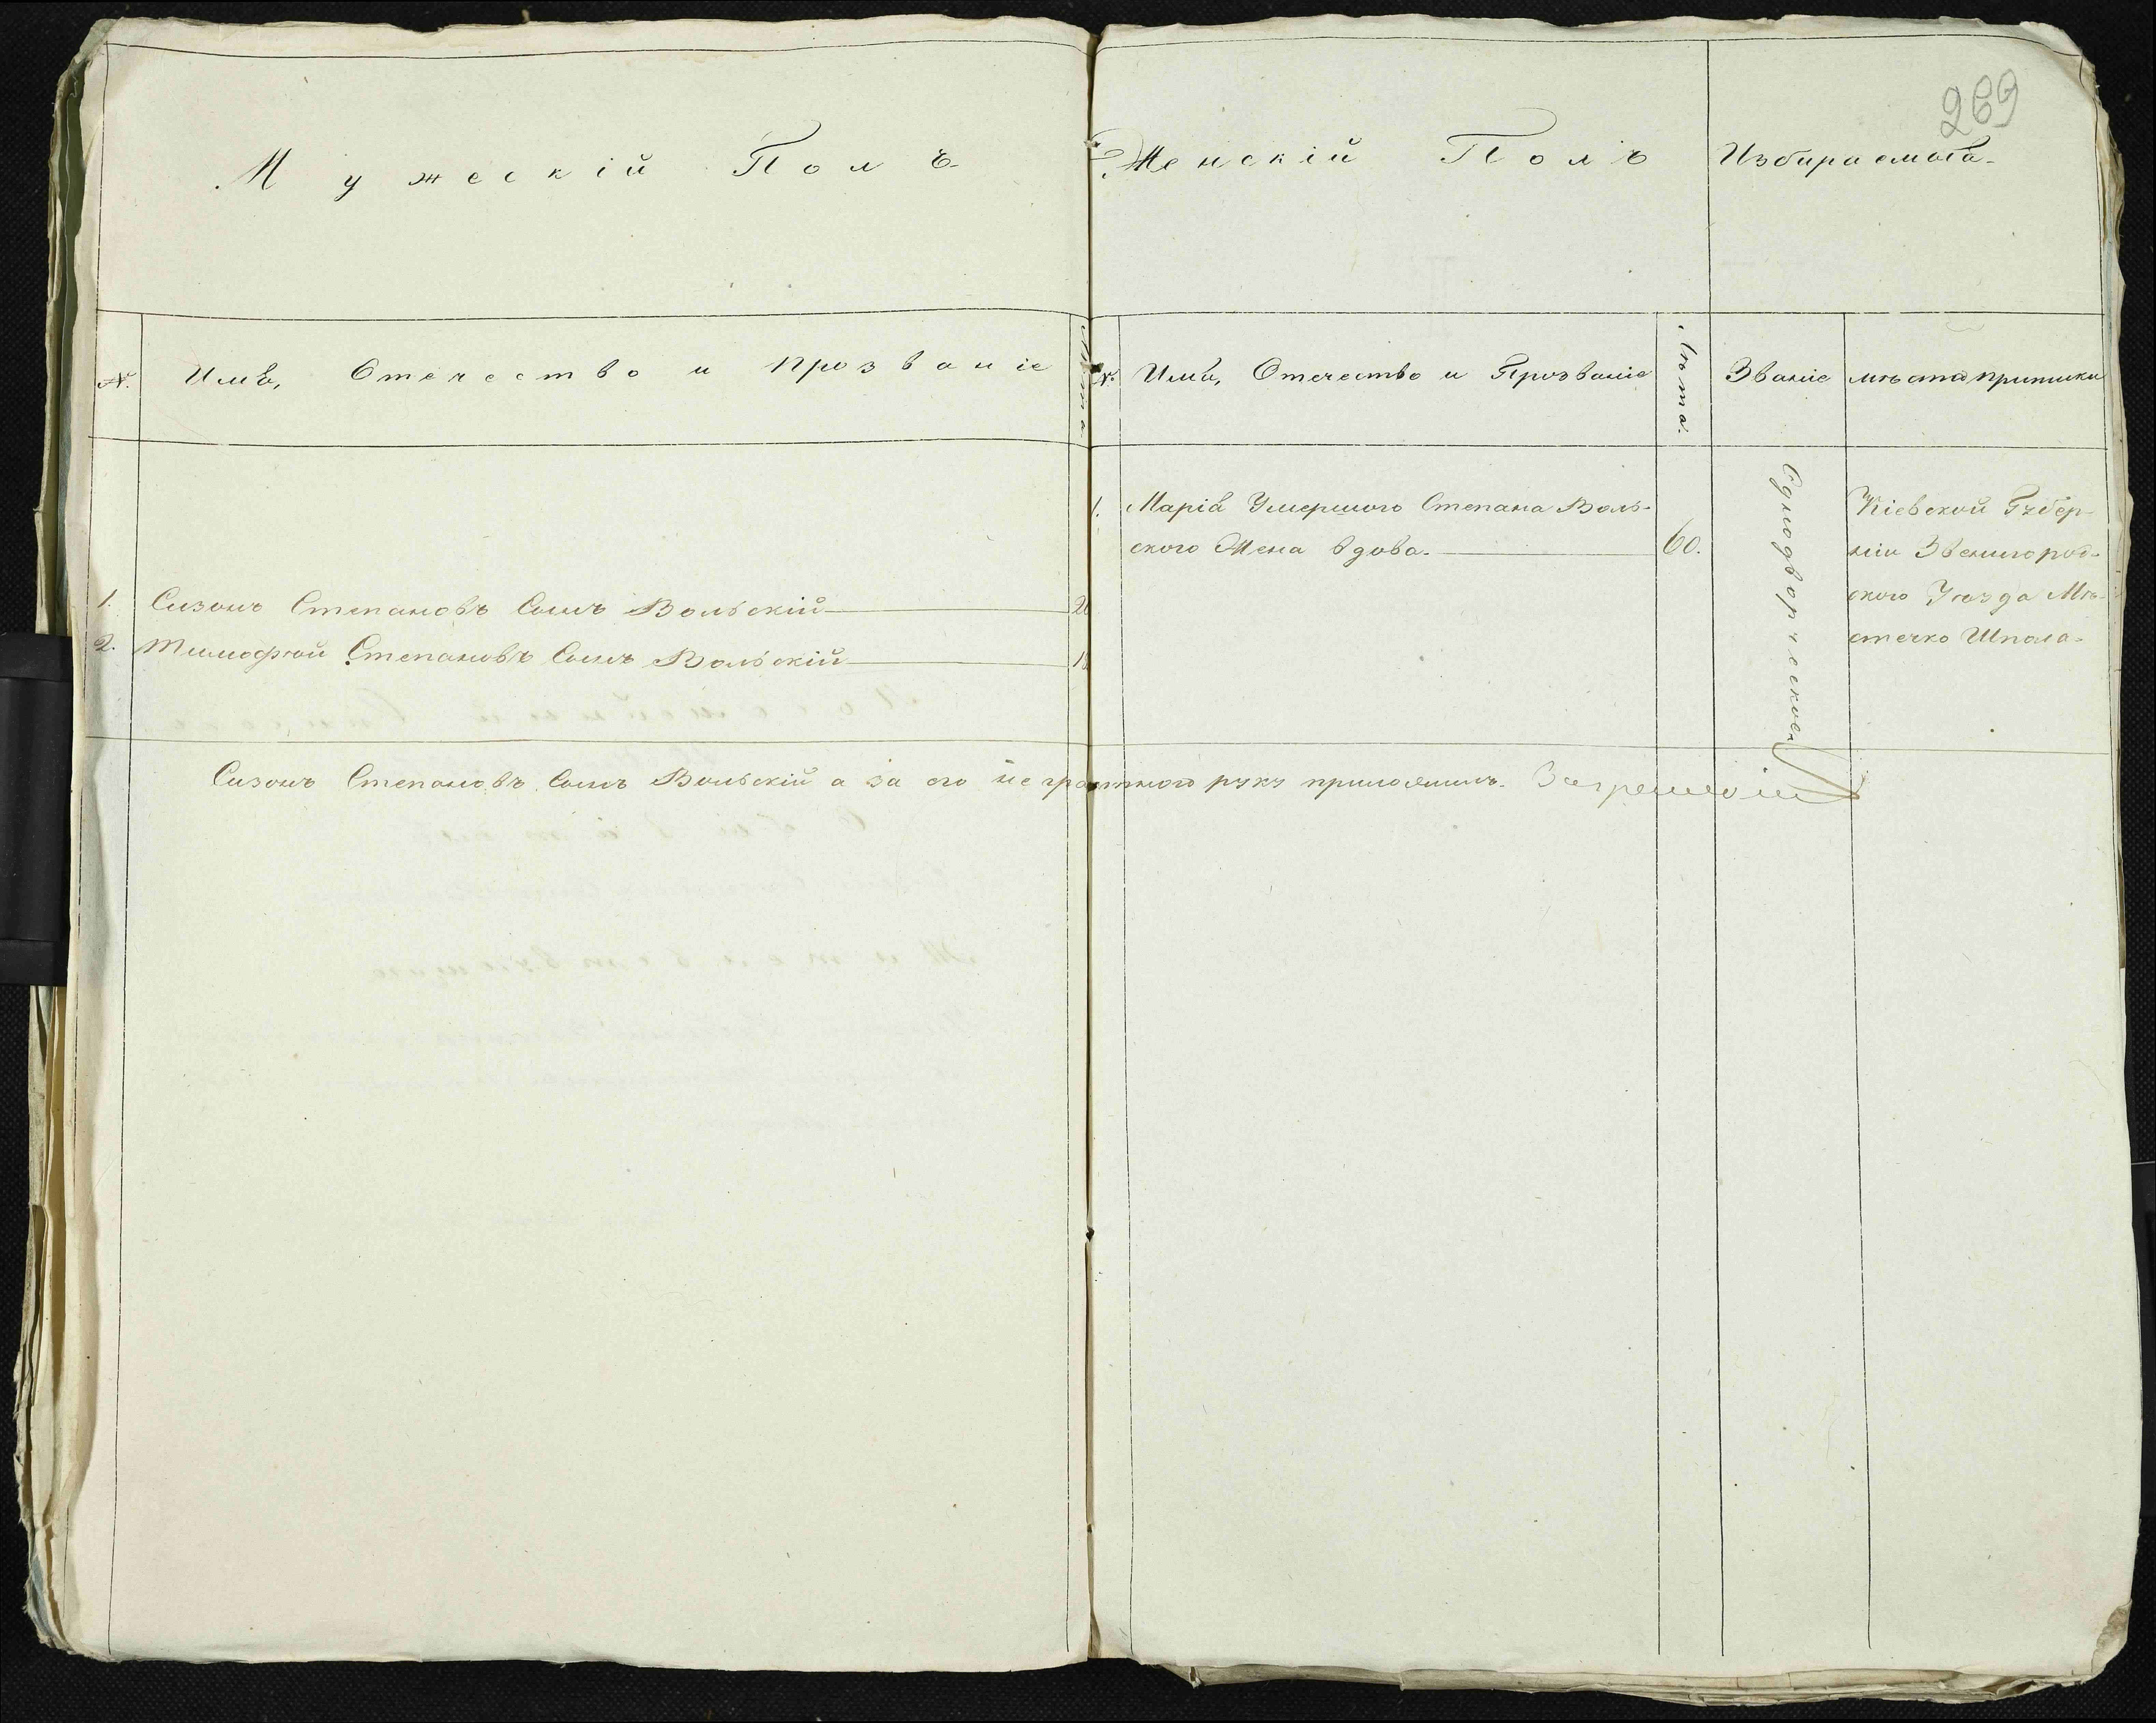 269
Мужескій Полъ
Женскій Полъ
Избираемаго
№.
Имя, Отечество и Прозваніе
Лѣта
№.
Имя, Отечество и Прозваніе
Лѣта.
Званіе
мѣста приписки
1. Марія Умершого Степана Воль-
ского Жена вдова. 60.
Однодворческое
Кіевской Губер-
ніи Звенигород-
ского Уѣзда Мѣ-
стечко Шпола
1. Сизонъ Степановъ Сынъ Вольскій
2. Тимофѣй Степановъ Сынъ Вольскій
Сизонъ Степановъ Сынъ Вольскій а за его неграмотного руку приложилъ